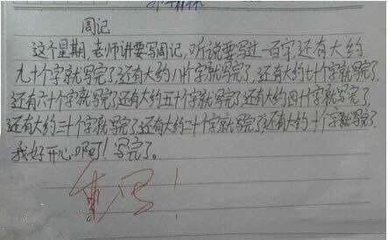 周记
这个星期,老师讲要写周记,听说要写过一百字还有大约
九十个字就写完了还有大约八十个字就写完了,还有大约七十个字就写完了
还有六十个字就写完了还有大约五十个字就写完了还有大约四十个字就写完了,
还有大约三十个字就写完了还有大约二十个字就写完了还有大约十个字就写完了.
我好开心啊!写完了。
重写!